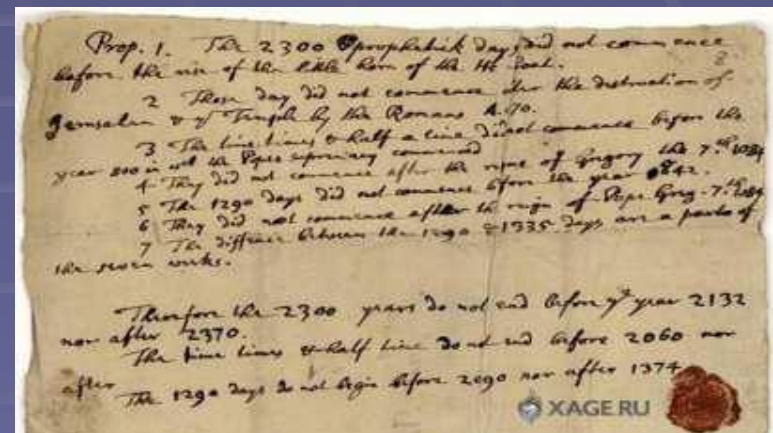 Prop. 1. The 2300 prophetick days did not commence
before the rise of the little horn of the He Goat.
2 Those day did not commence after the destruction of
Jerusalem & ye Temple by the Romans A. 70.
3 The time times & half a time did not commence before the
year 800 in wch the Popes supremacy commenced
4 They did not commence after the reigne of Gregory the 7th. 1084
5 The 1290 days did not commence before the year 842.
6 They did not commence after the reigne of Pope Greg. 7th. 1084
7 The diffence between the 1290 & 1335 days are a parts of
the seven weeks.
Therefore the 2300 years do not end before ye year 2132
nor after 2370.
The time times & half time do not end before 2060 nor
after
The 1290 days do not begin before 2090 nor after 1374
XAGE.RU